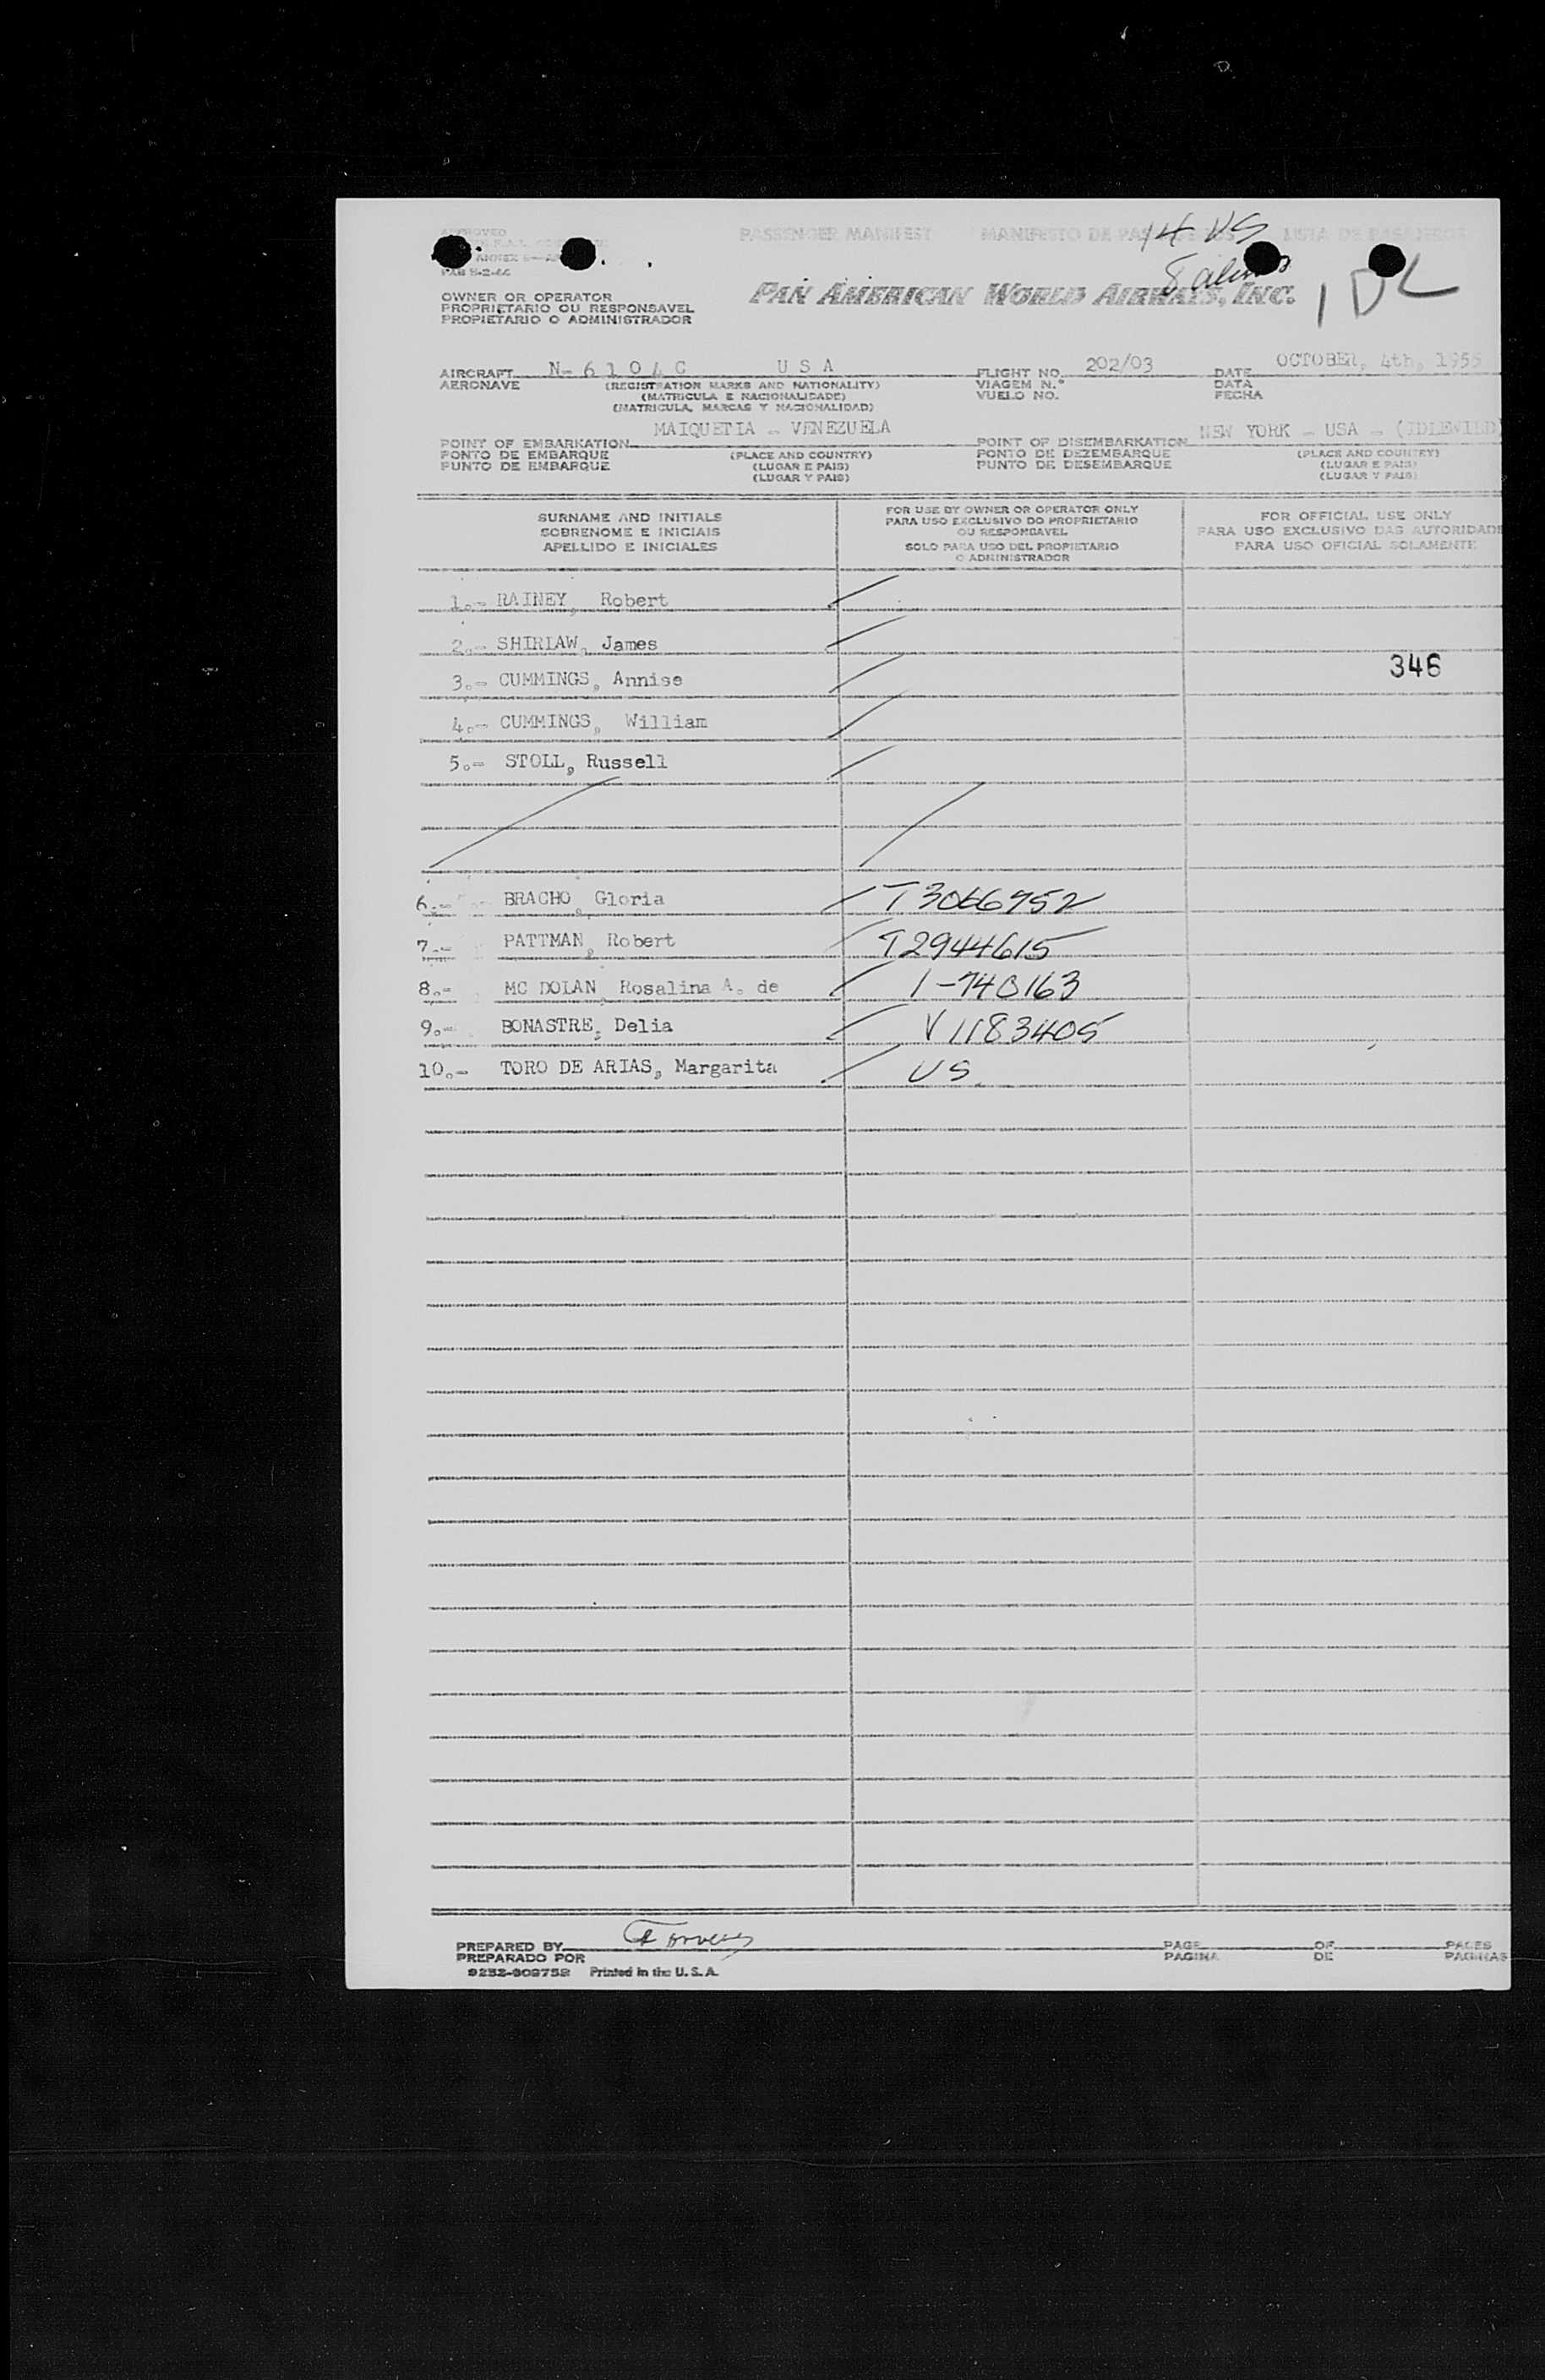 APPROVED
PASSENGER MANIFEST MANIFESTO DE LISTA DE PASAJEROS
14 US
8 aliens
1 DL
ANNEX
OWNER OR OPERATOR
PROPRIETARIO OU RESPONSAVEL
PROPIETARIO O ADMINISTRADOR
PAN AMERICAN WORLD AIRWAYS, INC.
AIRCRAFT N-6104C USA FLIGHT NO. 202/03 DATE OCTOBER, 4th, 1955
AERONAVE (REGISTRATION MARKS AND NATIONALITY) VIAGEM N.º DATA
(MATRICULA E NACIONALIDADE) VUELO NO. FECHA
(MATRICULA, MARCAS Y NACIONALIDAD)
POINT OF EMBARKATION MAIQUETIA - VENEZUELA POINT OF DISEMBARKATION NEW YORK - USA - (IDLEWILD)
PONTO DE EMBARQUE (PLACE AND COUNTRY) PONTO DE DEZEMBARQUE (PLACE AND COUNTRY)
PUNTO DE EMBARQUE (LUGAR E PAIS) PUNTO DE DESEMBARQUE (LUGAR E PAIS)
(LUGAR Y PAIS) (LUGAR Y PAIS)
SURNAME AND INITIALS
SOBRENOME E INICIAIS
APELLIDO E INICIALES
FOR USE BY OWNER OR OPERATOR ONLY
PARA USO EXCLUSIVO DO PROPRIETARIO
OU RESPONSAVEL
SOLO PARA USO DEL PROPIETARIO
O ADMINISTRADOR
FOR OFFICIAL USE ONLY
PARA USO EXCLUSIVO DAS AUTORIDADE
PARA USO OFICIAL SOLAMENTE
1.- RAINEY, Robert
2.- SHIRLAW, James
346
3.- CUMMINGS, Annise
4.- CUMMINGS, William
5.- STOLL, Russell
6.- BRACHO, Gloria T3066952
7.- PATTMAN, Robert T2944615
8.- MC DOLAN, Rosalina A. de 1-740163
9.- BONASTRE, Delia V1183405
10.- TORO DE ARIAS, Margarita US
PREPARED BY PAGE OF PAGES
PREPARADO POR PAGINA DE PAGINAS
Printed in the U.S.A.